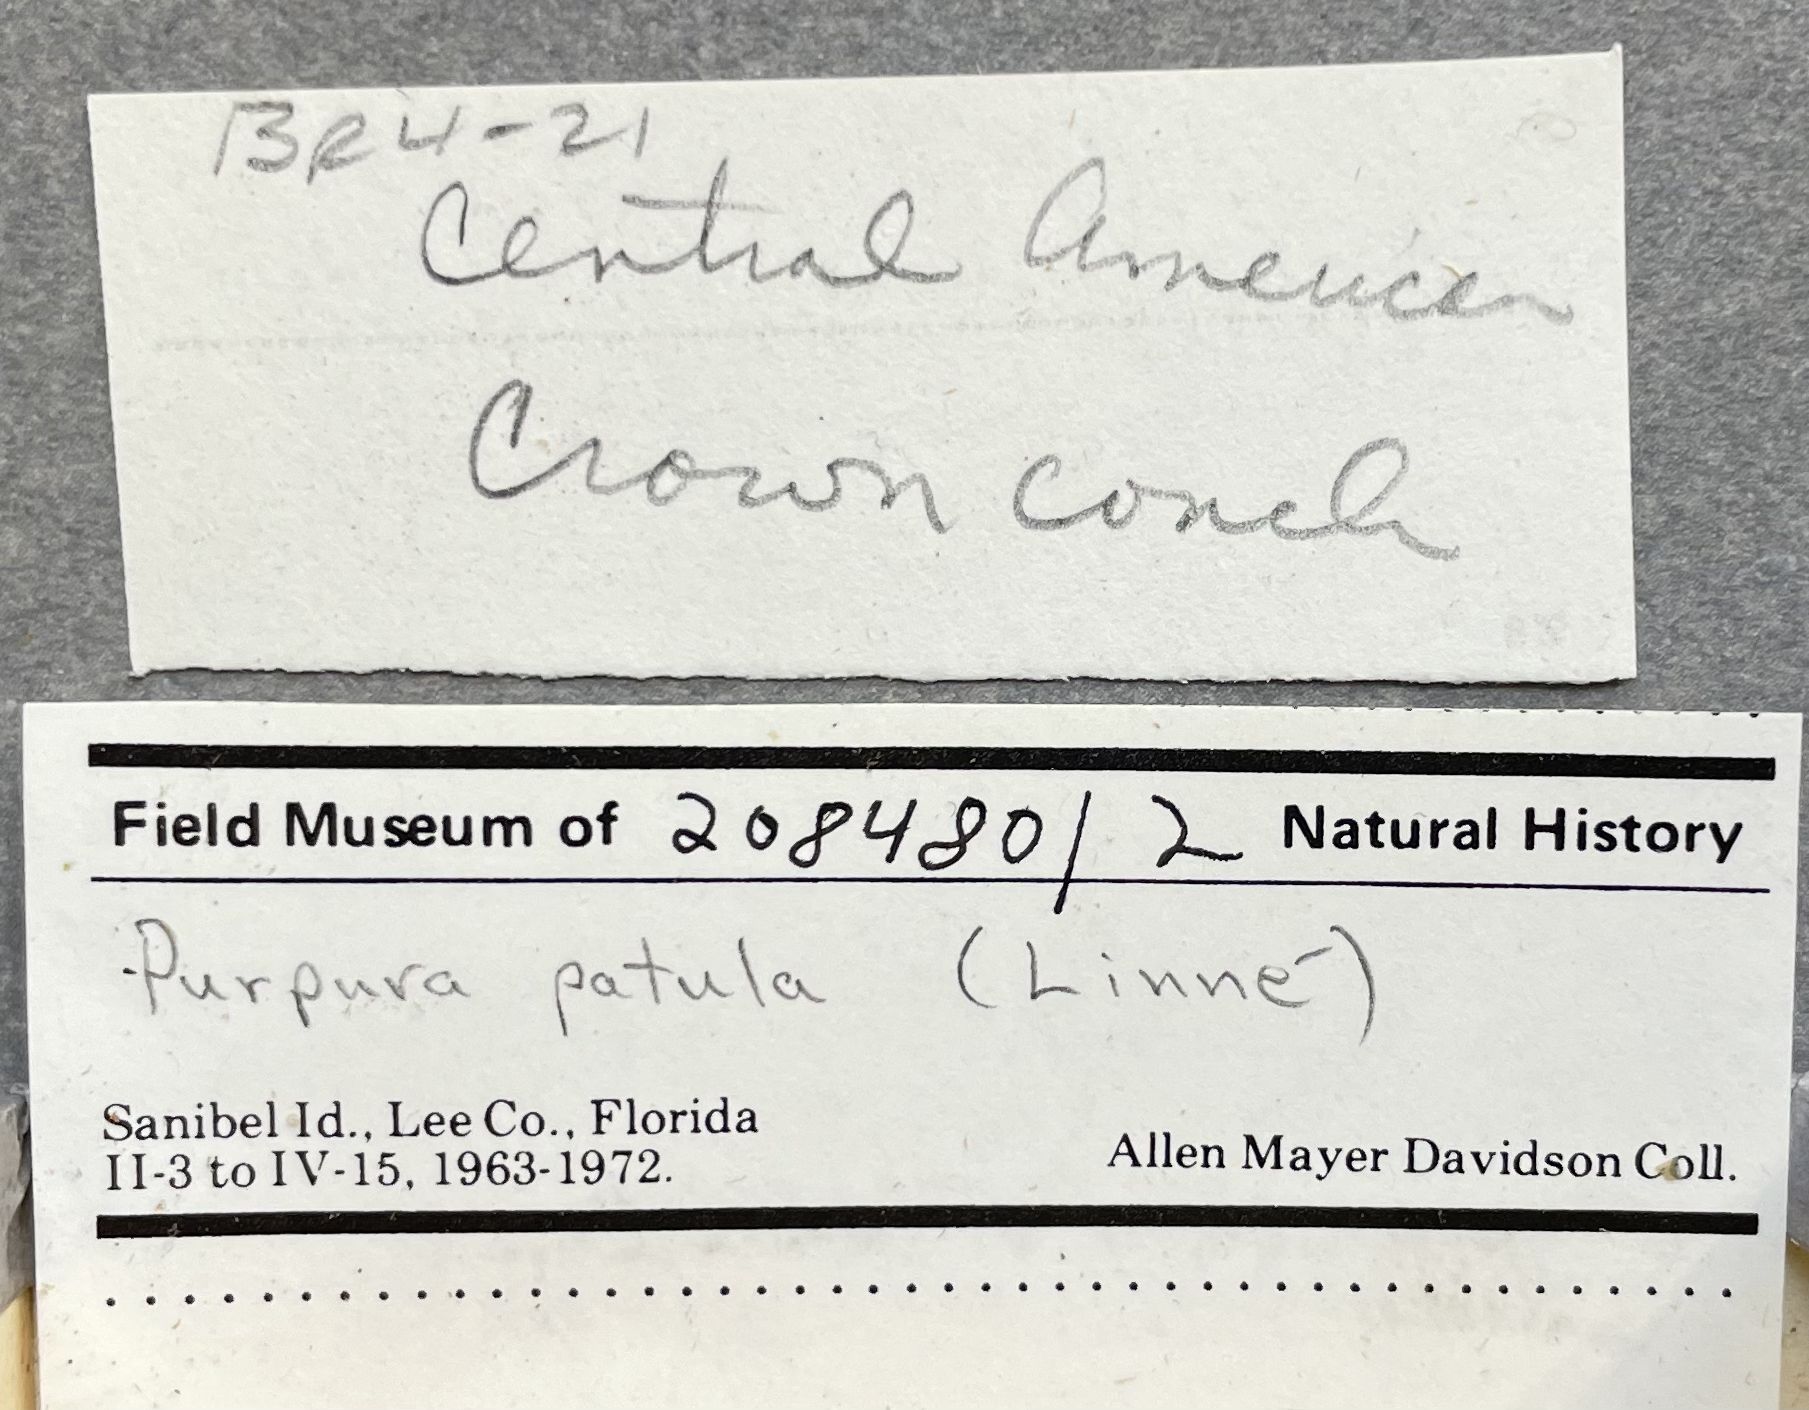 BR4-21
Central American
Crown conch
Field Museum of 208480/2 Natural History
Purpura patula (Linné)
Sanibel Id., Lee Co., Florida
II-3 to IV-15, 1963-1972.
Allen Mayer Davidson Coll.